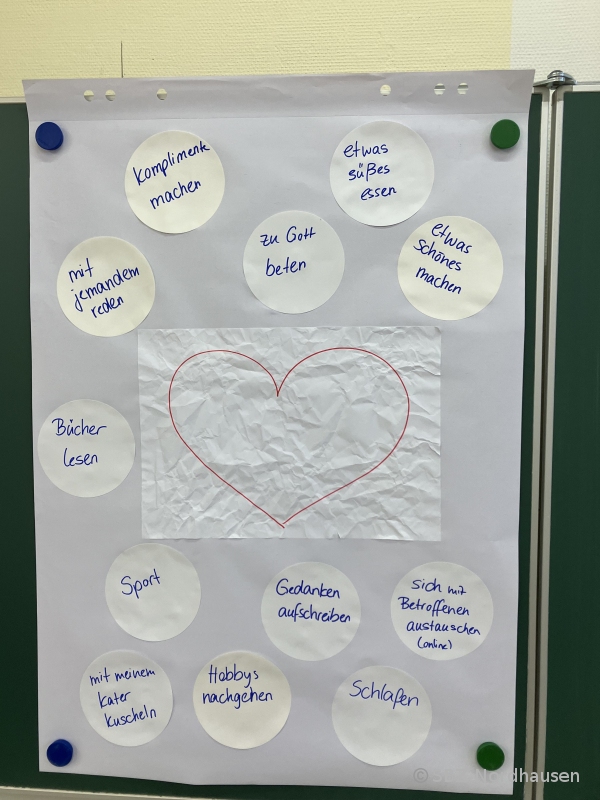 Komplimente
machen
etwas
süßes
essen
zu Gott
beten
etwas
Schönes
machen
mit
jemandem
reden
Bücher
lesen
Sport
Gedanken
aufschreiben
sich mit
Betroffenen
austauschen
(online)
mit meinem
Kater
kuscheln
Hobbys
nachgehen
Schlafen